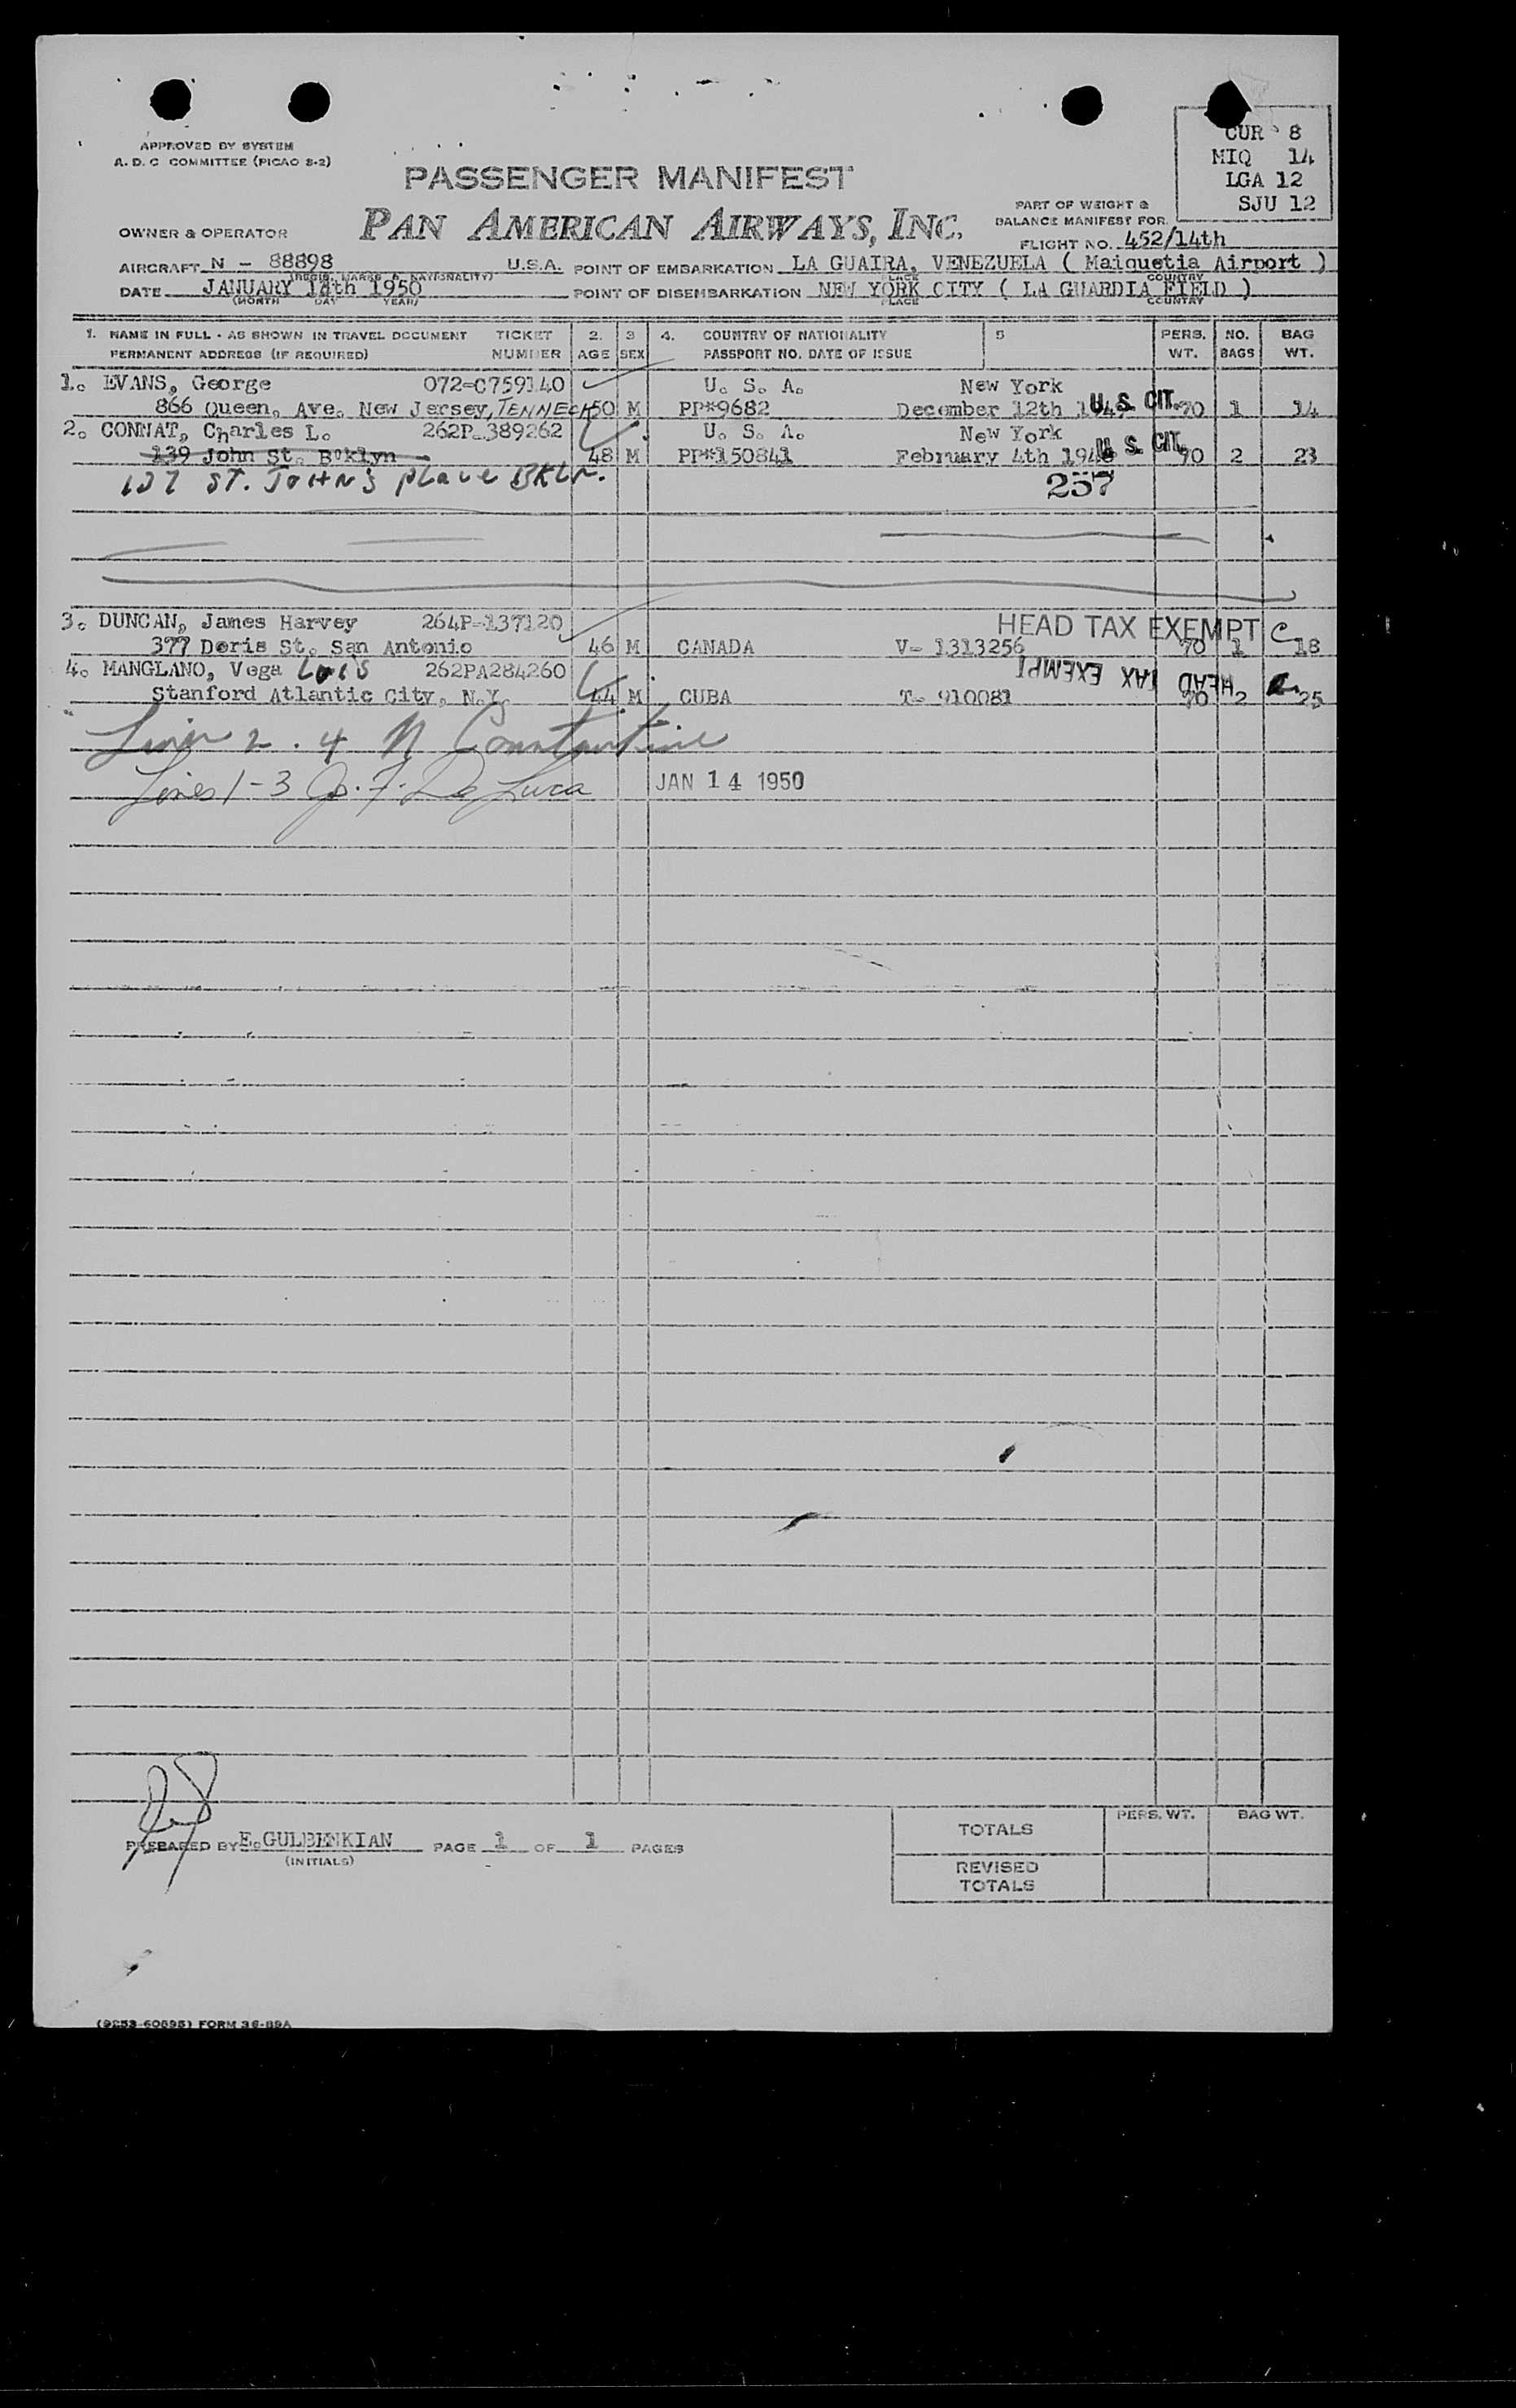 APPROVED BY SYSTEM
A. D. C COMMITTEE (PICAO 8-2)
CUR 8
MIQ 14
LGA 12
SJU 12
PASSENGER MANIFEST
PAN AMERICAN AIRWAYS, INC.
PART OF WEIGHT &
BALANCE MANIFEST FOR
OWNER & OPERATOR
FLIGHT NO. 452/14th
AIRCRAFT N - 88898 U.S.A. POINT OF EMBARKATION LA GUAIRA, VENEZUELA ( Maiquetia Airport )
(REGIS. MARKS & NATIONALITY) PLACE COUNTRY
DATE JANUARY 14th 1950 POINT OF DISEMBARKATION NEW YORK CITY ( LA GUARDIA FIELD )
(MONTH DAY YEAR) PLACE COUNTRY
1. NAME IN FULL - AS SHOWN IN TRAVEL DOCUMENT TICKET 2. 3 4. COUNTRY OF NATIONALITY 5 PERS. NO. BAG
PERMANENT ADDRESS (IF REQUIRED) NUMBER AGE SEX PASSPORT NO. DATE OF ISSUE WT. BAGS WT.
1. EVANS, George 072-C759140 U. S. A. New York
866 Queen, Ave. New Jersey, TENNECK 50 M PP*9682 December 12th U. S. CIT. 70 1 14
2. CONNAT, Charles L. 262P-389262 U. S. A. New York
139 John St. Boklyn 48 M PP*150841 February 4th U. S. CIT. 70 2 23
ST. JOHNS place BKLN.
257
3. DUNCAN, James Harvey 264P-137120 HEAD TAX EXEMPT C
377 Doris St. San Antonio 46 M CANADA V- 1313256 70 1 18
4. MANGLANO, Vega Luis 262PA284260 HEAD TAX EXEMPT
Stanford Atlantic City, N.Y. 44 M CUBA T- 910081 70 2 25
Lines 2 . 4 N Constantine
Lines 1-3 Jo. F. De Luca JAN 14 1950
PREPARED BY E. GULBENKIAN PAGE 1 OF 1 PAGES
(INITIALS)
PERS. WT. BAG WT.
TOTALS
REVISED
TOTALS
(9253-60895) FORM 36-89A